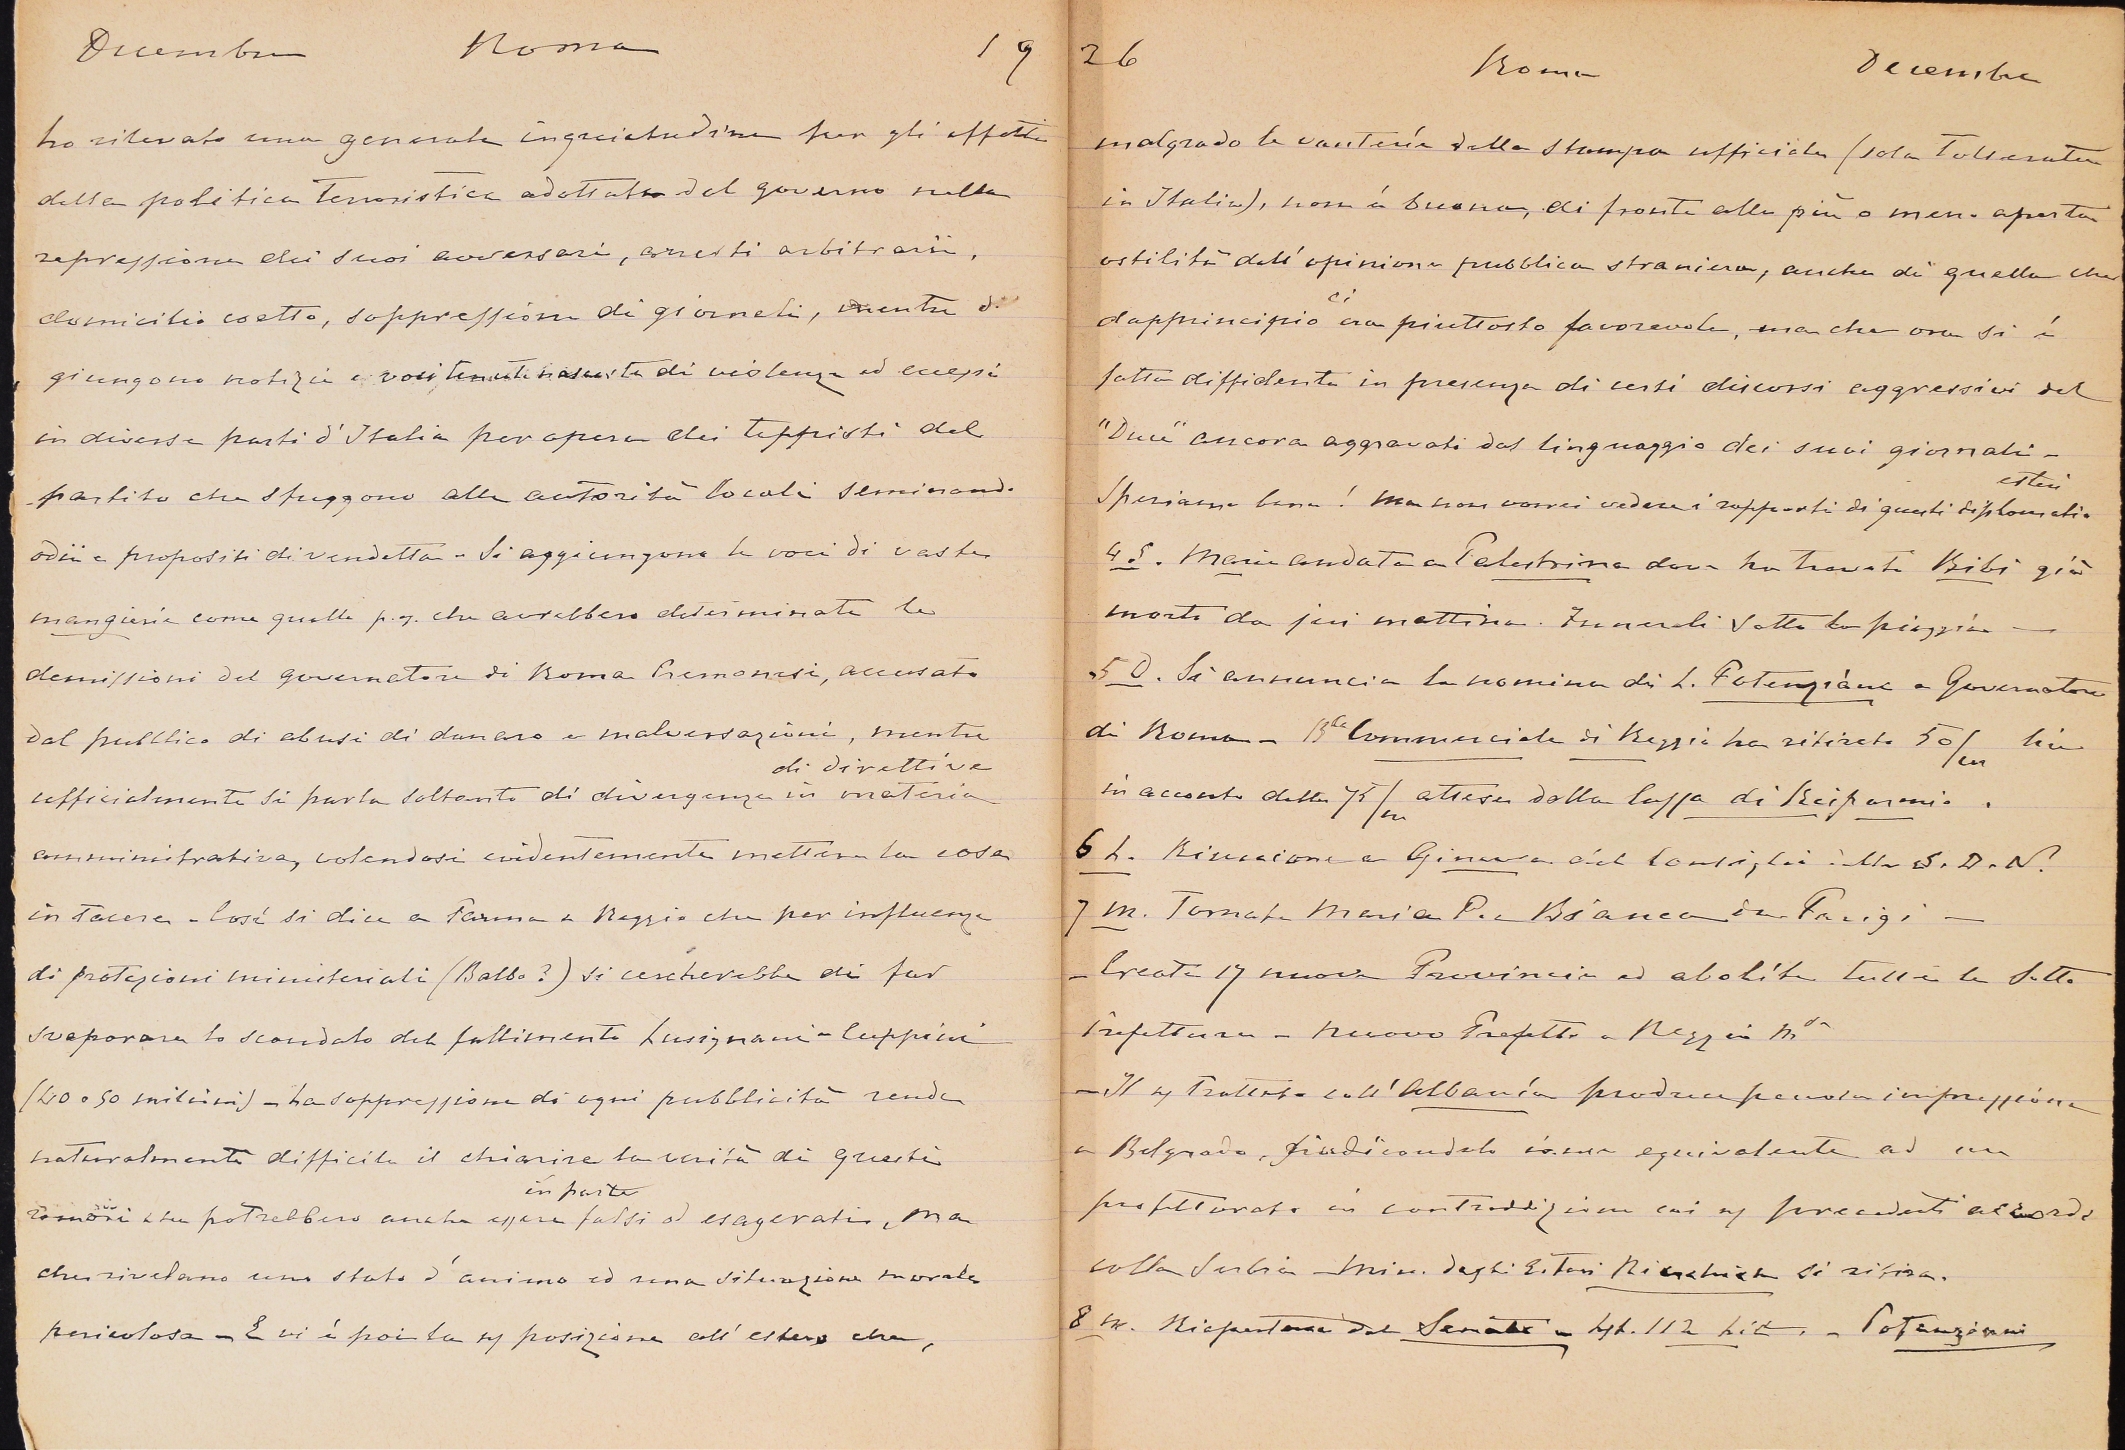 Decembre Roma 19
ho rilevato una generale inquietudine per gli effetti
della politica terroristica adottata dal governo nella
repressione dei suoi avversari, arresti arbitrarii,
domicilio coatto, soppressione di giornali, mentre
giungono notizie e voci di violenze ed eccessi
in diverse parti d'Italia per opera dei teppisti del
partito che sfuggono alle autorità locali seminando
odii e propositi di vendetta - Si aggiungono le voci di vaste
mangierie come quelle p. es. che avrebbero determinate le
demissioni del governatore di Roma Cremonesi, accusato
dal pubblico di abusi di danaro e malversazioni, mentre
di direttive
ufficialmente si parla soltanto di divergenze in materia
amministrativa, volendosi evidentemente mettere la cosa
in tacere - Così si dice a Parma e Reggio che per influenze
di protezioni ministeriali (Balbo?) si cercherebbe di far
svaporare lo scandalo del fallimento Lusignani - Cuppini
(40 o 50 milioni) - La soppressione di ogni pubblicità rende
naturalmente difficile il chiarire la verità di questi
in parte
romori che potrebbero anche essere falsi od esagerati, ma
che rivelano uno stato d'animo ed una situazione morale
pericolosa - E vi è poi la ns posizione all'estero che,
26 Roma Decembre
malgrado le vanterie della stampa ufficiale (sola tollerata
in Italia), non è buona, di fronte alla più o meno aperta
ostilità dell'opinione pubblica straniera, anche di quella che
ci
dapprincipio era piuttosto favorevole, ma che ora si è
fatta diffidente in presenza di certi discorsi aggressivi del
"Duce" ancora aggravati dal linguaggio dei suoi giornali -
esteri
Speriamo bene! Ma non vorrei vedere i rapporti di questi diplomatici
4 S. Maria andata a Palestrina dove ha trovato Bibi già
morto da jeri mattina. Funerali sotto la pioggia -
5 D. Si annuncia la nomina di L. Potenziani a Governatore
di Roma - Bca Commerciale di Reggio ha ritirato 50/m lire
in acconto delle 75/m attese dalla Cassa di Risparmio.
6 L. Riunione a Ginevra del Consiglio della S. D. N.
7 M. Tornate Maria P. e Bianca da Parigi -
- Create 17 nuove Provincie ed abolite tutte le Sotto
Prefetture - Nuovo Prefetto a Reggio
- Il ns trattato coll'Albania produce penosa impressione
a Belgrado, giudicandolo come equivalente ad un
protettorato in contraddizione coi ns precedenti accordi
colla Serbia - Min. degli Esteri si ritira.
8 M. Riapertura del Senato - - Potenziani